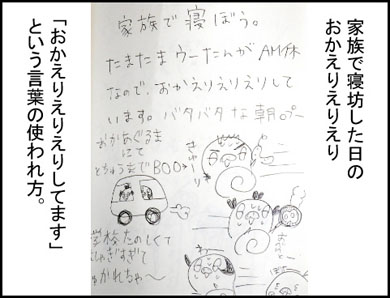 家族で寝坊した日の
おかえりえりえり
家族で寝ぼう。
たまたまウーたんがAM休
なので、おかえりえりえりして
います。バタバタな朝。
おかあぐるま
にて
とちゅうまでBOO
学校たのしくて
しゃぎすぎて
かれちゃ〜
「おかえりえりえりしてます」
という言葉の使われ方。